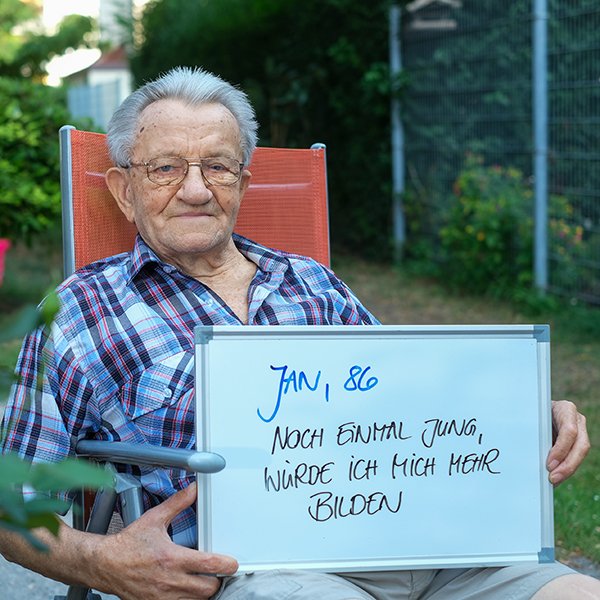 JAN, 86
NOCH EINMAL JUNG,
WÜRDE ICH MICH MEHR
BILDEN